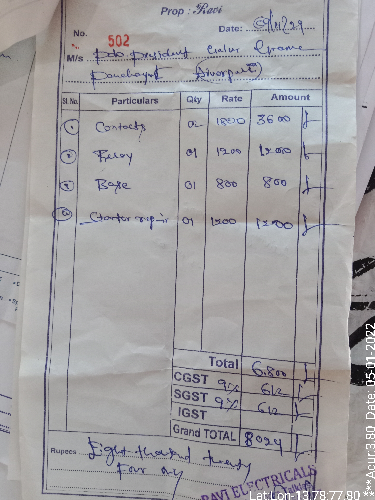 Prop : Ravi
No. 502 Date:
M/s Pdo president Grama
Panchayat
Sl.No. Particulars Qty Rate Amount
1 Contacts 02 1800 3600
2 Relay 01 1200 1200
3 Base 01 800 800
4 Starter repair 01 1200 1200
Total 6.800
CGST 9% 612
SGST 9% 612
IGST
Grand TOTAL 8024
Rupees Eight thousand twenty
Four only
RAVI ELECTRICALS
Lat:Lon-13.78:77.80
***Acur:3.80 Date:05-01-2022